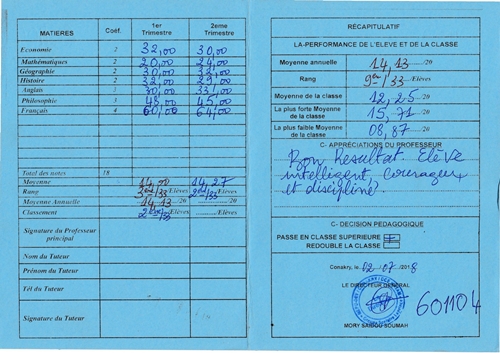 MATIERES Coéf. 1er Trimestre 2eme Trimestre
Economie 2 32,00 30,00
Mathématiques 2 20,00 24,00
Géographie 2 30,00 32,00
Histoire 2 32,00
Anglais 30,00
Philosophie 3 48,00 45,00
Français 4 60,00 64,00
Total des notes 18
Moyenne 14,00 14,27
Rang /33 Elèves /33 /Elèves
Moyenne Annuelle 14,13 /20 /20
Classement /33 /Elèves
Signature du Professeur principal
Nom du Tuteur
Prénom du Tuteur
Tél du Tuteur
Signature du Tuteur
RÉCAPITULATIF
LA-PERFORMANCE DE L'ELEVE ET DE LA CLASSE
Moyenne annuelle 14,13 /20
Rang /33 /Elèves
Moyenne de la classe 12,25 /20
La plus forte Moyenne de la classe 15,71 /20
La plus faible Moyenne de la classe 08,87 /20
C- APPRÉCIATIONS DU PROFESSEUR
Bon Resultat. Elève
intelligent, courageux
et discipliné.
C- DECISION PEDAGOGIQUE
PASSE EN CLASSE SUPERIEURE
REDOUBLE LA CLASSE
Conakry, le 02-07 /2018
LE DIRECTEUR GENERAL
601104
MORY SAIDOU SOUMAH